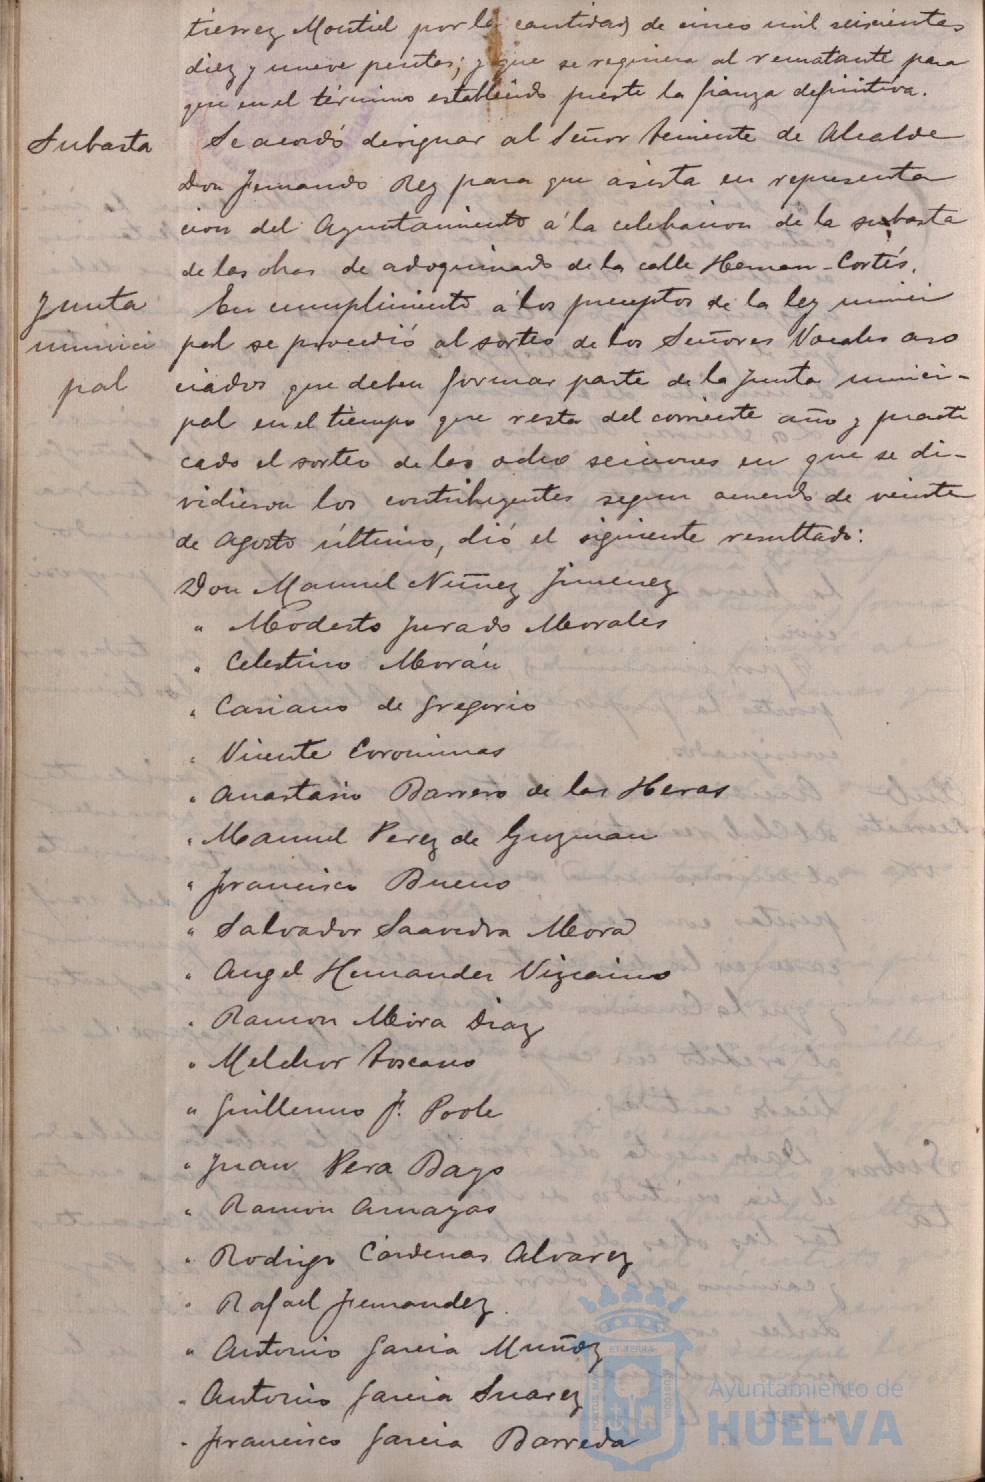 tierrez Montiel por la cantidad de cinco mil seiscientas
diez y nueve pesetas; y que se requiera al rematante para
que en el término establecido preste la fianza definitiva.
Subasta
Se acordó designar al Señor Teniente de Alcalde
Don Fernando Rey para que asista en representa
cion del Ayuntamiento á la celebracion de la subasta
de las obras de adoquinado de la calle Hernan-Cortés.
Junta
munici
pal
En cumplimiento á los preceptos de la ley munici
pal se procedió al sorteo de los Señores Vocales aso
ciados que deben formar parte de la Junta munici-
pal en el tiempo que resta del corriente año y practi
cado el sorteo de las ocho secciones en que se di-
vidieron los contribuyentes segun acuerdo de veinte
de Agosto último, dió el siguiente resultado:
Don Manuel Nuñez Jimenez
" Modesto Jurado Morales
" Celestino Morán
" Casiano de Gregorio
" Vicente Corominas
" Anastasio Barrero de las Heras
" Manuel Perez de Guzman
" Francisco Bueno
" Salvador Saavedra Mora
" Angel Hernandez Vizcaino
" Ramon Mora Diaz
" Melchor Toscano
" Guillermo F. Poole
" Juan Pera Bago
" Ramon Amayas
" Rodrigo Cárdenas Alvarez
" Rafael Fernandez
" Antonio Garcia Muñoz
" Antonio Garcia Suarez
" Francisco Garcia Barreda
Ayuntamiento de
HUELVA